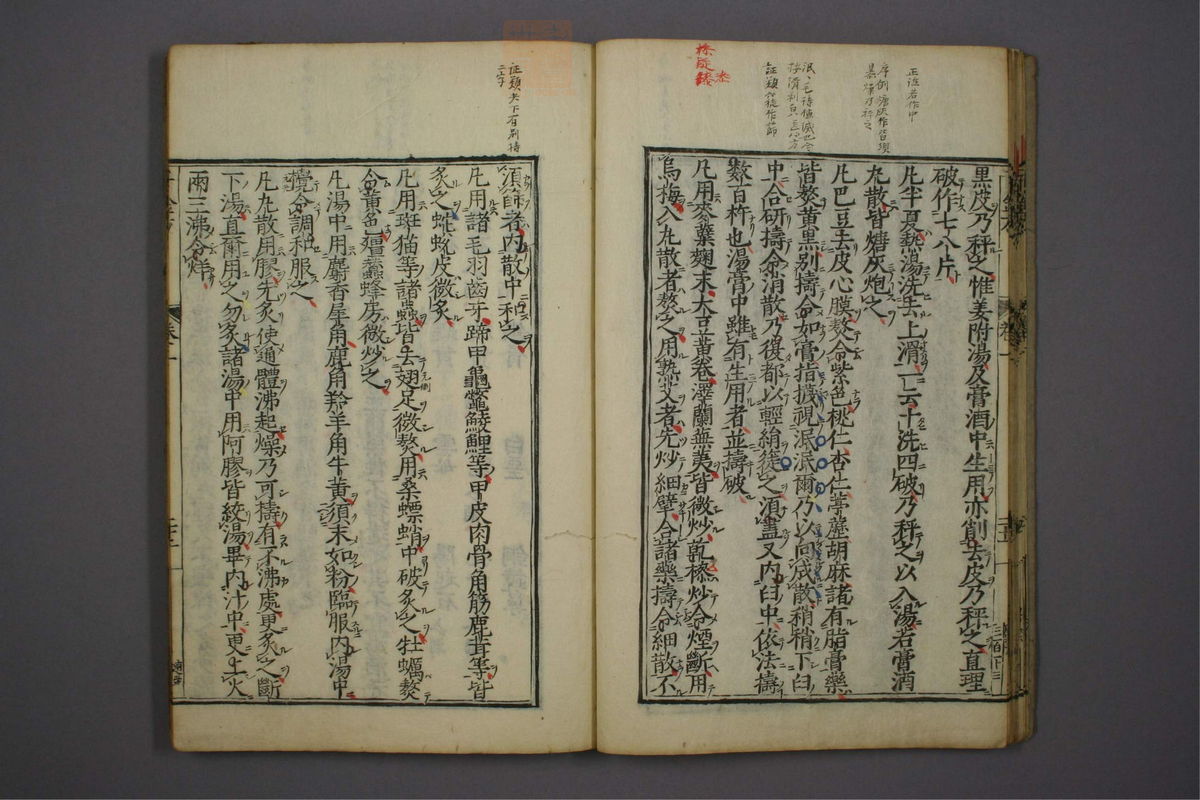 黒皮乃秤之惟姜附湯及膏酒中生用亦削去皮乃秤之直理
破作七八片
凡半夏熱湯洗去上滑一云十洗四破乃秤之以入湯若膏酒
丸散皆煻灰炮之
凡巴豆去皮心膜熬令紫色桃仁杏仁葶藶胡麻諸有脂膏藥
皆熬黄黒別擣令如膏指㩢視泯泯爾乃以向成散稍稍下臼
中合研擣令消散乃復都以輕絹簁之湏盡又内臼中依法擣
數百杵也湯膏中雖有生用者並擣破
凡用麥蘗麴末大豆黄卷澤蘭蕪荑皆微炒乾㯃炒令煙斷用
烏梅入丸散者熬之用熟艾者先炒細擘合諸藥擣令細散不
可篩者内散中和之
凡用諸毛羽齒牙蹄甲龜鼈鯪鯉等甲皮肉骨角筋鹿茸等皆
炙之蛇蛻皮微炙
凡用斑猫等諸蟲皆去翅足微熬用桑螵蛸中破炙之牡蠣熬
令黄色殭蠶蜂房微炒之
凡湯中用麝香犀角鹿角羚羊角牛黄須末如粉臨服内湯中
攪令調和服之
凡丸散用膠先炙使通體沸起燥乃可擣有不沸處更炙之斷
下湯直爾用之勿炙諸湯中用阿膠皆絞湯畢内汁中更上火
兩三沸令烊
卷一
卷一